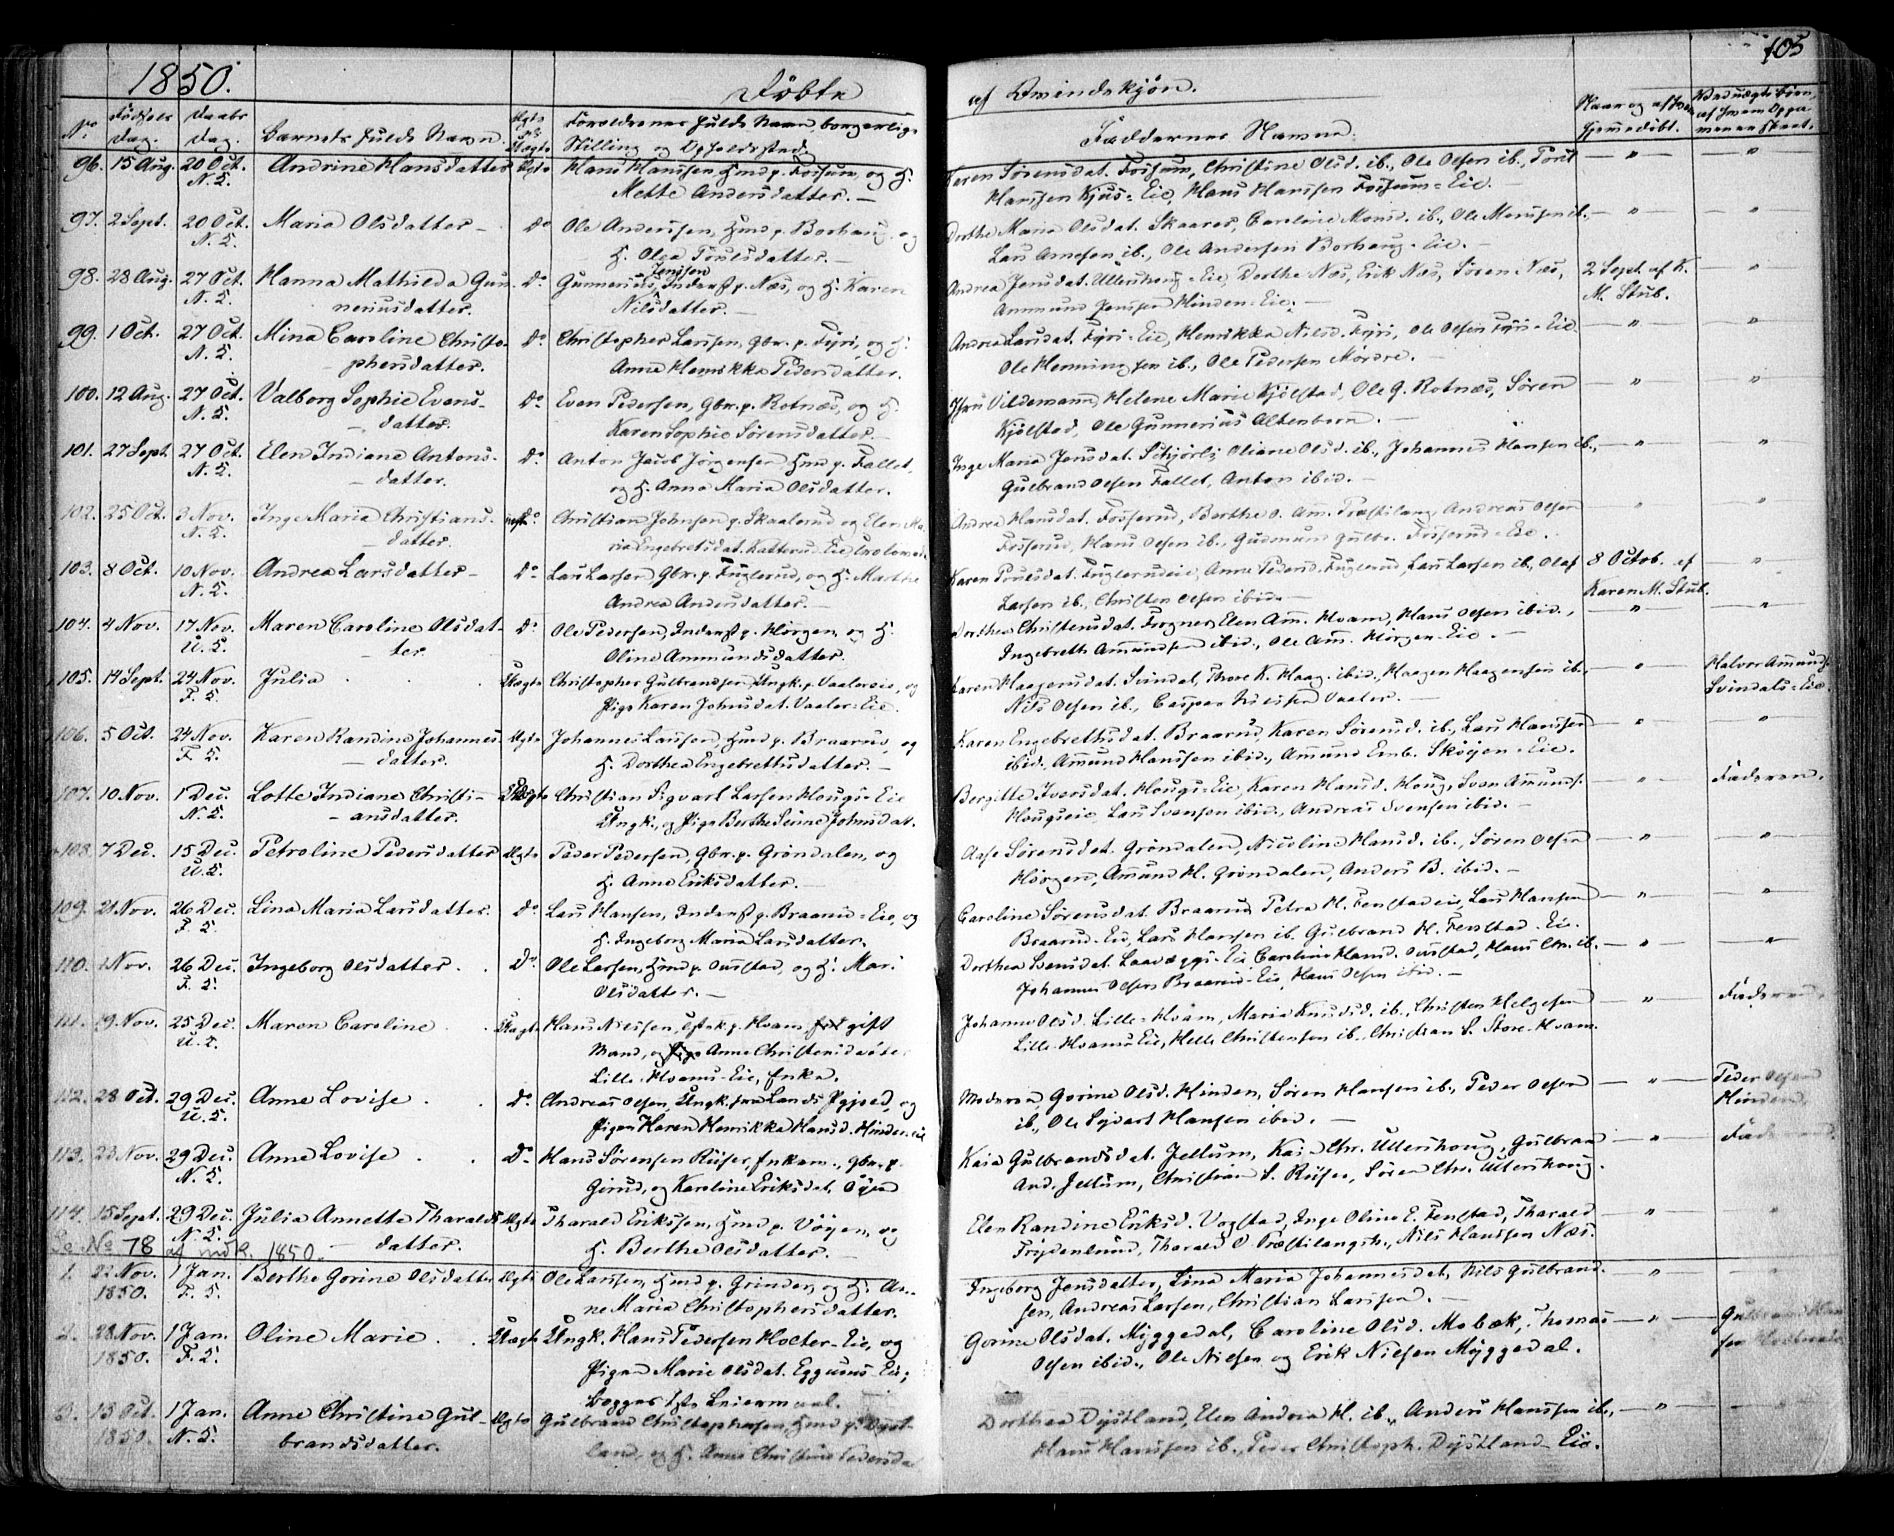 1850. Døbte
af Qvindekjøn. 105
No Fødsels Dag. Daabs Dag. Barnets fulde Navn. Ægte el. Uægte Forældrenes fulde Navn, borgerlige Stilling og Opholdssted.
Faddernes Navne.
96. 15 Aug. 20 Oct. Andrine Hansdatter Ægte Hans Hanssen Hmd p. Fossum, og H.
N. K. Mette Andersdatter. —
Maren Sørensdat. Fossum, Christine Olsd. ib., Ole Olsen ib.,
Hanssen Kjus-Eie, Hans Hanssen Fossum-Eie. —
97. 2 Sept. 20 Oct. Maria Olsdatter — Do Ole Anderssen, Hmd p. Borhaug, og
N. K. H. Olea Poulsdatter. —
Dorthe Maria Olsdat. Skaarer, Caroline Monsd. ib., Ole Monssen ib.
Lars Arnesen ib., Ole Andersen Borhaug-Eie. —
98. 28 Aug. 27 Oct. Hanna Mathilda Gun- Do Gunnerius Jenssen, Inderst p. Næs, og H. Karen
N. K. neriusdatter. Nilsdatter. —
Andrea Jensdat. Ullershoug-Eie, Dorthe Næs, Erik Næs, Søren Næs, 2 Sept. af K.
Ammund Jenssen Hinden-Eie. — M. Stub.
99. 1 Oct. 27 Oct. Mina Caroline Christo- Do Christopher Larssen, Gbr. p. Fyri, og H.
N. K. phersdatter. Anne Henrikka Pedersdatter.
Andrea Larsdat. Fyri-Eie, Henrikka Nilsd. Fyri, Ole Olsen Fyri-Eie
Ole Henningsen ib., Ole Pedersen Mørdre.
100. 12 Aug. 27 Oct. Valborg Sophie Evens- Do Even Pedersen, Gbr. p. Rotnæs, og H.
N. K. datter. Karen Sophie Sørensdatter. —
Jfru Vildemann, Helene Marie Kjølstad, Ole G. Rotnæs, Søren
Kjølstad, Ole Gunnerius Altenborn. —
101. 27 Sept. 27 Oct. Elen Indiane Antons- Do Anton Jacob Jörgensen Hmd p. Fallet,
N. K. datter. og H. Anna Maria Olsdatter.
Inge Maria Jensdat. Oliane Olsd. ib., Johannes Hansen ib.,
Gulbrand Olsen Fallet, Anton ibid. —
102. 25 Oct. 3 Nov. Inge Maria Christians- Do Christian Johnsen p. Skaalerud og Elen Ma-
N. K. datter. ria Engebretsdat.
Andrea Hansdat. Fosserud, Berthe O. Am. Præstelang, Andreas Olsen
Fosserud, Hans Olsen ib., Gudmund Gulbr. Fosserud-Eie.
103. 8 Oct. 10 Nov. Andrea Larsdatter — Do Lars Larsen, Gbr. p. Fuglerud, og H. Marthe
N. K. Andrea Andersdatter. —
Karen Poulsdat. Fuglerudeie, Anne Pedersd. Fuglerud, Lars Larsen ib., Olaf 8 Octob. af
Larsen ib., Christen Olsen ibid. — Karen M. Stub.
104. 4 Nov. 17 Nov. Maren Caroline Olsdat- Do Ole Pedersen, Inderst p. Hörgen, og H.
U. K. ter. Oline Ammundsdatter.
Dorthea Christensdat. Frogner, Elen Am. Hvam, Hans Olsen ibid.,
Ingebreth Amundsen ibid., Ole Am. Hörgen-Eie. —
105. 14 Sept. 24 Nov. Julia Uægte Christopher Gulbrandsen, Ungk. p. Vaalereie, og
F. K. Pige Karen Johnsdat. Vaaler-Eie.
Karen Haagensdat. Svindal, Thore K. Haag. ibid., Haagen Haagensen ib., Halvor Amunds.
Nils Olsen ib., Casper Nielsen Vaaler. — Svindals-Eie.
106. 5 Oct. 24 Nov. Karen Randine Johannes- Ægte Johannes Larssen, Hmd p. Braarud, og
F. K. datter. H. Dorthea Engebrethsdatter. —
Karen Engebrethsdat. Braarud, Karen Sørensd. ib., Lars Hanssen
ibid., Amund Hanssen ibid., Amund Emb. Skøjen-Eie.
107. 10 Nov. 1 Dec. Lotte Indiane Christi- Uægte Christian Sigvart Larsen Hougs-Eie
N. K. ansdatter. Ungk., og Pige Berthe Serine Johnsdat.
Bergitte Iversdat. Hougs-Eie, Karen Hansd. Houg, Sven Amunds. Faderen.
Hougseie, Lars Svensen ibid., Andreas Svensen ibid. —
108. 7 Dec. 15 Dec. Petroline Pedersdatter Ægte Peder Pedersen, Gbr. p. Gröndalen, og
U. K. H. Anne Eriksdatter. —
Aase Sørensdat. Gröndalen, Nicoline Hansd. ib., Søren Olsen
Hörgen, Amund H. Gröndalen, Anders B. ibid. —
109. 21 Nov. 26 Dec. Lina Maria Larsdatter. Do Lars Hansen, Inderst p. Braarud-Eie, og
F. K. H. Ingeborg Maria Larsdatter.
Caroline Sørensdat. Braarud, Petra H. Fenstadeie, Lars Hanssen
Braarud-Eie, Lars Hansen ib. Gulbrand H. Fenstad-Eie.
110. 1 Nov. 26 Dec. Ingeborg Olsdatter. Do Ole Larsen, Hmd p. Ousstad, og H. Mari
F. K. Olsdatter. —
Dorthea Hansdat. Eie Caroline Hansd. Ousstad, Hans Chr. ib.
Johannes Olsen Braarud-Eie, Hans Olsen ibid. —
111. 9 Nov. 25 Dec. Maren Caroline Uægte Hans Nielsen, p. Hvam gift
U. K. Mand, og Anne Christensdatter
Lille-Hvams-Eie, Enke.
Johanne Olsd. Lille-Hvam, Maria Knudsd. ib., Christen Helgesen Faderen.
Lille-Hvams-Eie, Helle Christensen ib., Christian L. Store-Hvam.
112. 28 Oct. 29 Dec. Anne Lovise Do Andreas Olsen, Ungk. fra Lands Pgjæld, og
U. K. Pigen Karen Henrikka Hansd. Hinden-eie
Moderen Gorine Olsd. Hinden, Søren Hansen ib., Peder Olsen Peder Olsen
ib., Ole Sivert Hansen ibid. — Hinden.
113. 23 Nov. 29 Dec. Anne Lovise Do Hans Sørensen Riiser, Enkem., Gbr. p.
N. K. Gjrud, og Karoline Eriksdat. Öyen
Kaia Gulbrandsdat. Jellum, Kaia Chr. Ullershoug, Gulbrand Faderen.
And. Jellum, Christian S. Riiser, Søren Chr. Ullershoug.
114. 15 Sept. 29 Dec. Julia Annette Tharalds- Ægte Tharald Erikssen, Hmd p. Vöyen, og
N. K. datter. H. Berthe Olsdatter. —
Elen Randine Eriksd. Vogstad, Inge Oline E. Fenstad, Tharald
Frydenlund, Tharald O Præstelangst., Nils Hanssen Næs.
Se No 78 af 1850.
1. 22 Nov. 1850. 1 Jan. Berthe Gorine Olsdatter Ægte Ole Larssen, Hmd p. Grinder, og H. An-
F. K. ne Maria Christophersdatter.
Ingeborg Jensdatter, Lina Maria Johannesdat., Nils Gulbrand-
sen, Andreas Larsen, Christian Larssen. —
2. 28 Nov. 1850. 1 Jan. Oline Marie Uægte Ungk. Hans Pedersen Holter-Eie, og
F. K. Pigen Marie Olsdat. Eggums Eie;
Begges 1ste Leiermaal.
Gorine Olsdat. Myggedal, Caroline Olsd. Mobæk, Thomas Gulbrand
Olsen ibid., Ole Nielsen og Erik Nielsen Myggedal.
3. 13 Oct. 1850. 1 Jan. Anne Christine Gul- Ægte Gulbrand Christophersen, Hmd p. Dyst-
N. K. brandsdatter. land, og H. Anne Christine Pedersda
Dorthea Dystland, Elen Andrea H. ib., Anders Hanssen ib.,
Hans Hanssen ib., Peder Christoph. Dystland-Eie.